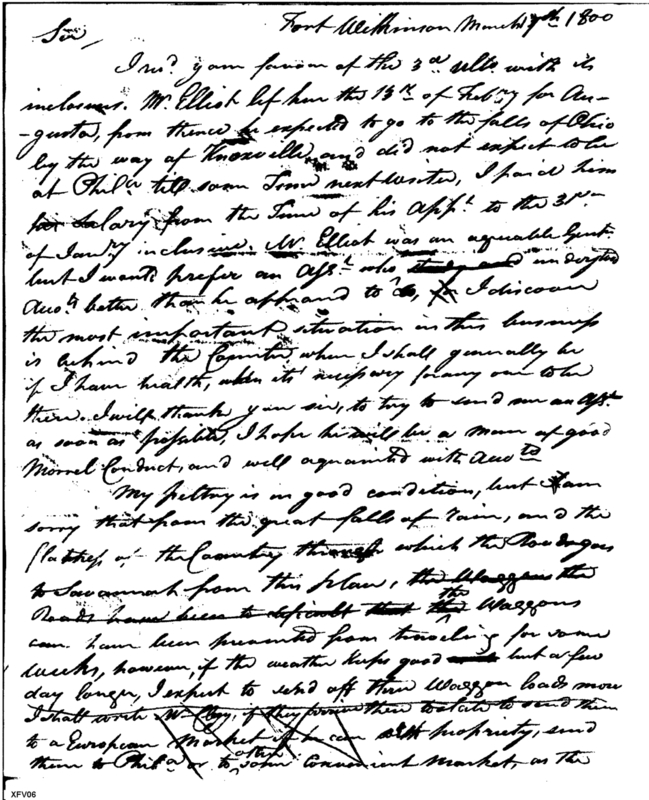 Fort Wilkinson March 7th 1800
Sir,
I recd. your favour of the 3d ulto. with its
inclosures. Mr. Elliot left here the 13th of Feby for Au-
-gusta, from thence he expected to go to the falls of Ohio
by the way of Knoxville, and did not expect to be
at Phila. till some Time next winter, I paid him
his Salary from the Time of his Appt. to the 31st
of Jany inclusive. Mr. Elliot was an agreeable Gent.
but I would prefer an Asst. who understood
Accts. better than he appeared to do, for I discover
the most important situation in this business
is behind the Counter, where I shall generally be
if I have health, when its necessary for any one to be
there. I will thank you sir, to try to send me an Asst.
as soon as possable, I hope he will be a man of good
Morrel Conduct, and well aquainted with Accts.
My peltry is in good condition, but I am
sorry that from the great falls of rain, and the
flatness of the Country through which the Road goes
to Savannah from this place, the Waggons the
Roads have been so dificult that the the Waggons
have been prevented from traveling for some
weeks, however, if the weather keeps good but a few
day longer, I expect to send off three Waggon loads more
I shall write Mr. Clay, if they prove then to late to send them
to a European Market if he can with propriety, send
them to Phila. or to some other Convenient Market, as the
XFV06